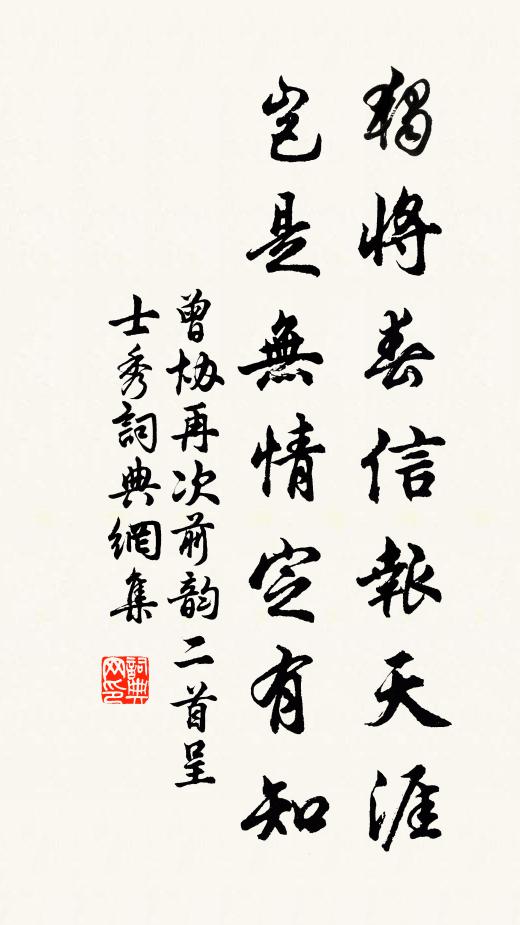 獨將春信報天涯
豈是無情定有知
曾協再次前韵二首呈
士秀詞典網集
詞典網印